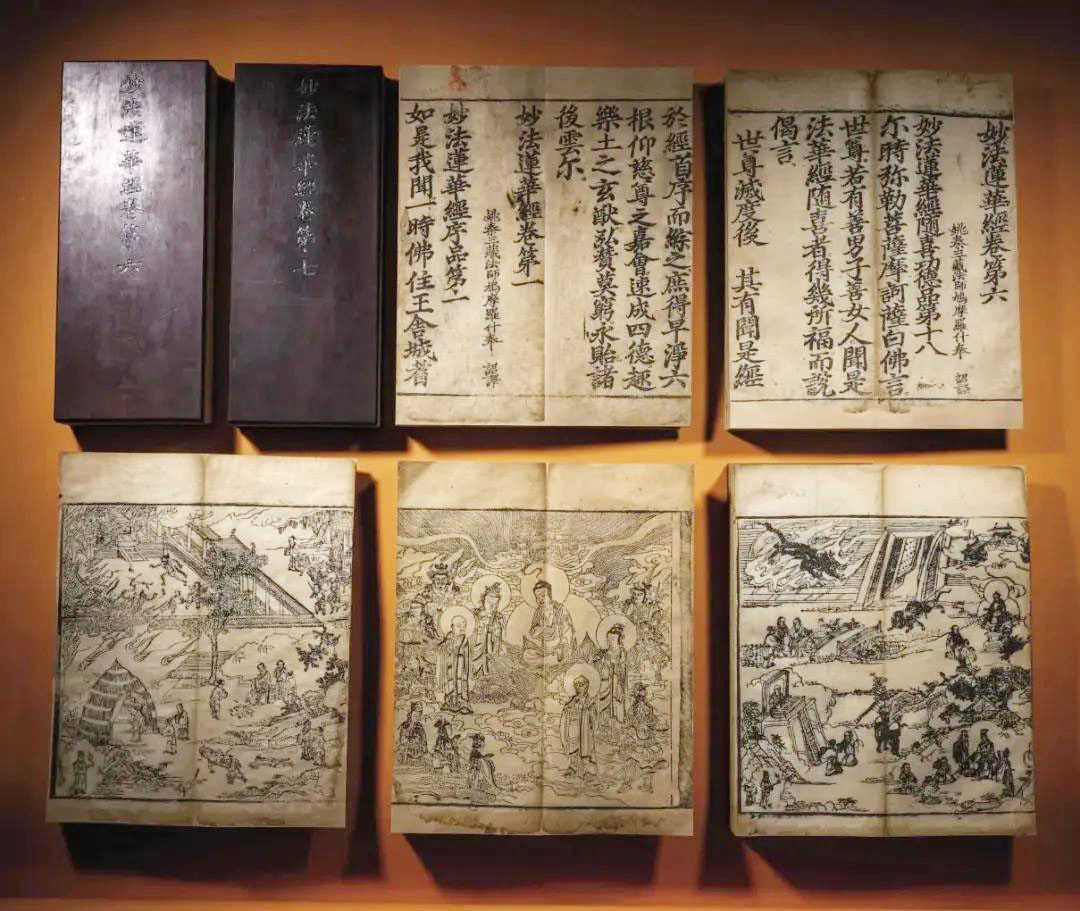 妙法蓮華經卷第六
妙法蓮華經卷第七
於經首序而綜之庶得早淨六
根仰慈尊之嘉會速成四德趣
樂土之玄猷弘賛莫窮永貽諸
後雲尒
妙法蓮華經卷第一
姚秦三藏法師鳩摩羅什奉 詔譯
妙法蓮華經序品第一
如是我聞一時佛住王舍城耆
妙法蓮華經卷第六
姚秦三藏法師鳩摩羅什奉 詔譯
妙法蓮華經隨喜功德品第十八
尒時弥勒菩薩摩訶薩白佛言
世尊若有善男子善女人聞是
法華經隨喜者得幾所福而說
偈言
世尊滅度後 其有聞是經